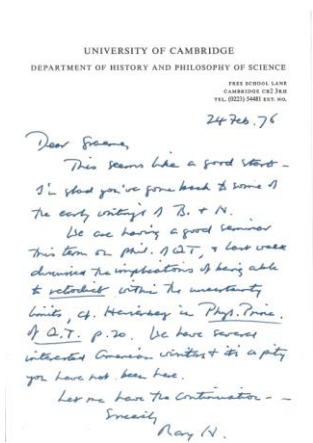 UNIVERSITY OF CAMBRIDGE
DEPARTMENT OF HISTORY AND PHILOSOPHY OF SCIENCE
FREE SCHOOL LANE
CAMBRIDGE CB2 3RH
TEL. (0223) 54481 EXT. NO.
24 Feb. 76
Dear
This seems like a good start –
I'm glad you've gone back to some of
the early writings of B. + H.
We are having a good seminar
this term on phil. of Q.T., & last week
discussed the implications of being able
to retrodict within the uncertainty
limits, cf. Heisenberg in Phys. Princ.
of Q.T. p. 20. We have several
interested American visitors & it's a pity
you have not been here.
Let me have the continuation –
Sincerely
Mary H.